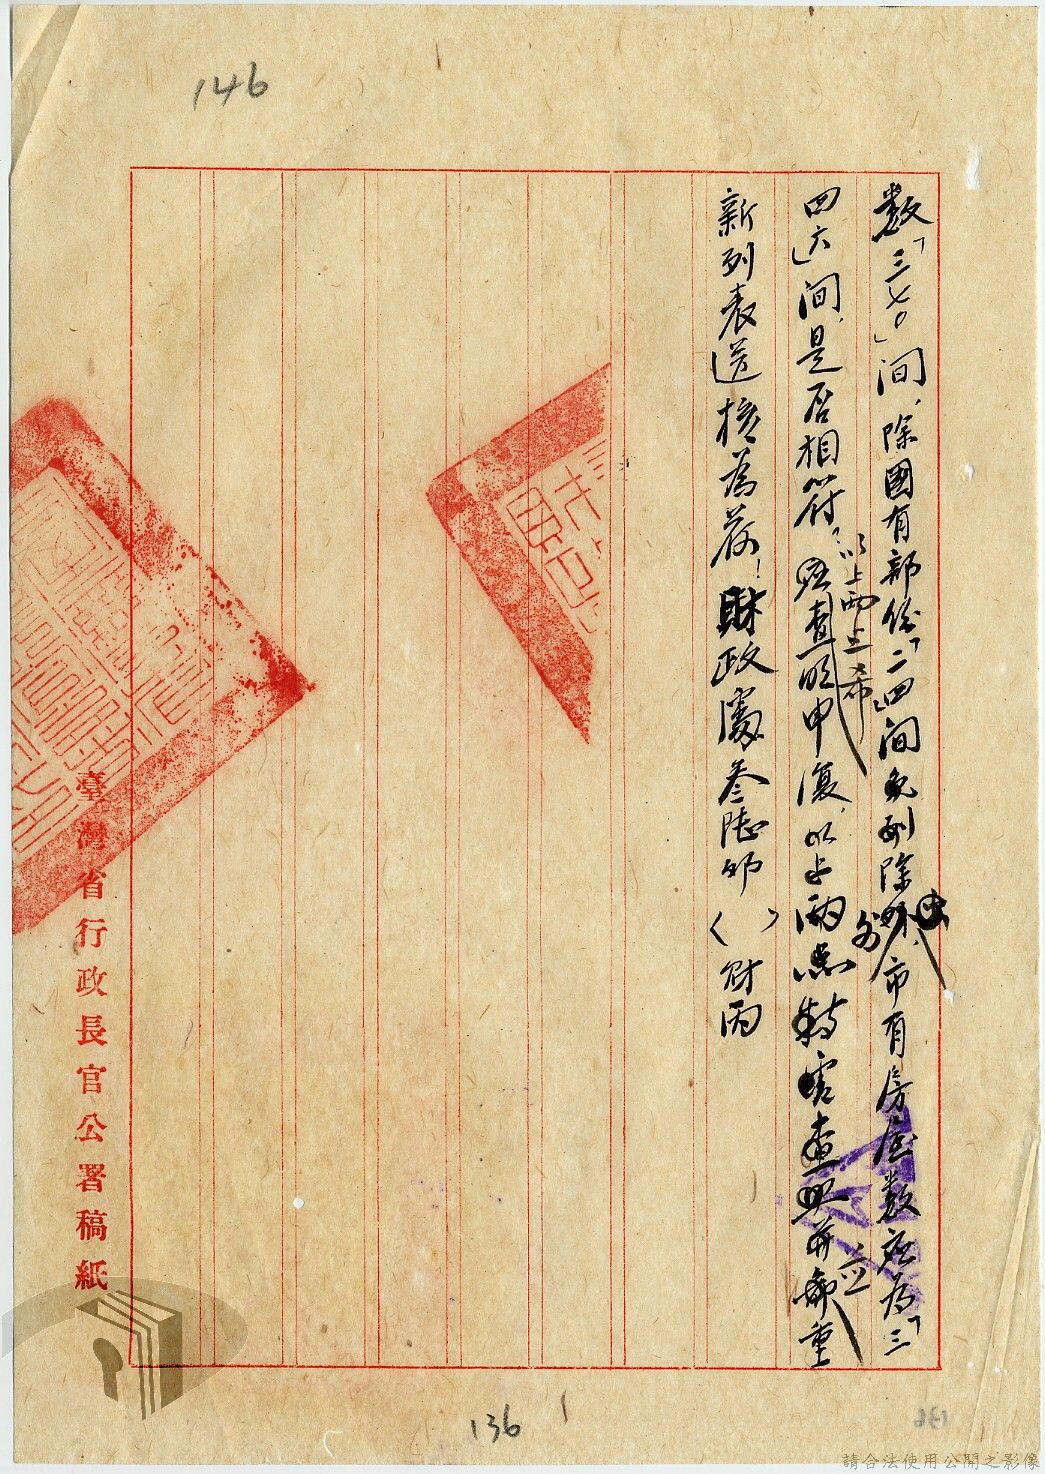 146
數「三七〇」間,除國有部份「二四」間免列除外,市有房屋數應為「三
四六」間,是否相符?應查明申復,以上兩點特害查照並重
以上兩点希
並
新列表送核為荷!財政處叁陸卯( )財丙
臺灣省行政長官公署稿紙
136
136
請合法使用公開之影像